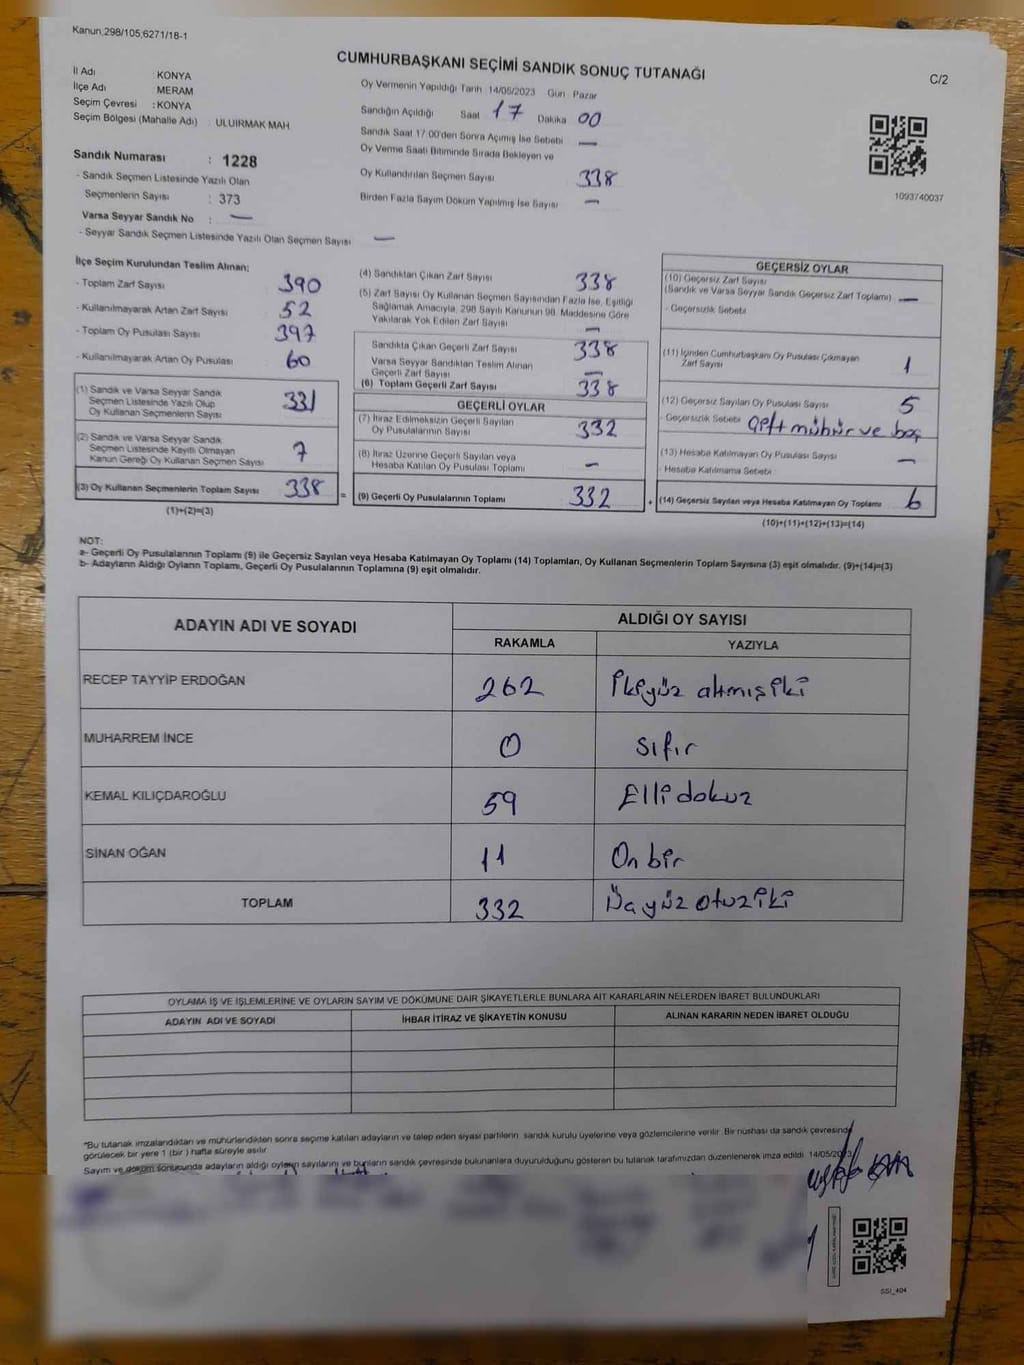 Kanun,298/105,6271/18-1
CUMHURBAŞKANI SEÇİMİ SANDIK SONUÇ TUTANAĞI
C/2
İl Adı : KONYA
İlçe Adı : MERAM
Seçim Çevresi : KONYA
Seçim Bölgesi (Mahalle Adı) : ULUIRMAK MAH
Sandık Numarası : 1228
- Sandık Seçmen Listesinde Yazılı Olan
Seçmenlerin Sayısı : 373
Varsa Seyyar Sandık No : —
- Seyyar Sandık Seçmen Listesinde Yazılı Olan Seçmen Sayısı —
Oy Vermenin Yapıldığı Tarih :14/05/2023 Gün : Pazar
Sandığın Açıldığı Saat 17 Dakika 00
Sandık Saat 17:00'den Sonra Açımış İse Sebebi —
Oy Verme Saati Bitiminde Sırada Bekleyen ve
Oy Kullandırılan Seçmen Sayısı 338
Birden Fazla Sayım Döküm Yapılmış İse Sayısı —
1093740037
İlçe Seçim Kurulundan Teslim Alınan;
- Toplam Zarf Sayısı 390
- Kullanılmayarak Artan Zarf Sayısı 52
- Toplam Oy Pusulası Sayısı 397
- Kullanılmayarak Artan Oy Pusulası 60
(1) Sandık ve Varsa Seyyar Sandık
Seçmen Listesinde Yazılı Olup
Oy Kullanan Seçmenlerin Sayısı 331
(2) Sandık ve Varsa Seyyar Sandık
Seçmen Listesinde Kayıtlı Olmayan
Kanun Gereği Oy Kullanan Seçmen Sayısı 7
(3) Oy Kullanan Seçmenlerin Toplam Sayısı 338
(1)+(2)=(3)
(4) Sandıktan Çıkan Zarf Sayısı 338
(5) Zarf Sayısı Oy Kullanan Seçmen Sayısından Fazla İse, Eşitliği
Sağlamak Amacıyla, 298 Sayılı Kanunun 98. Maddesine Göre
Yakılarak Yok Edilen Zarf Sayısı —
Sandıkta Çıkan Geçerli Zarf Sayısı 338
Varsa Seyyar Sandıktan Teslim Alınan
Geçerli Zarf Sayısı —
(6) Toplam Geçerli Zarf Sayısı 338
GEÇERLİ OYLAR
(7) İtiraz Edilmeksizin Geçerli Sayılan
Oy Pusulalarının Sayısı 332
(8) İtiraz Üzerine Geçerli Sayılan veya
Hesaba Katılan Oy Pusulası Toplamı —
= (9) Geçerli Oy Pusulalarının Toplamı 332 +
GEÇERSİZ OYLAR
(10) Geçersiz Zarf Sayısı
(Sandık ve Varsa Seyyar Sandık Geçersiz Zarf Toplamı) —
- Geçersizlik Sebebi
(11) İçinden Cumhurbaşkanı Oy Pusulası Çıkmayan
Zarf Sayısı 1
(12) Geçersiz Sayılan Oy Pusulası Sayısı 5
- Geçersizlik Sebebi Çift mühür ve boş
(13) Hesaba Katılmayan Oy Pusulası Sayısı —
- Hesaba Katılmama Sebebi
(14) Geçersiz Sayılan veya Hesaba Katılmayan Oy Toplamı 6
(10)+(11)+(12)+(13)=(14)
NOT:
a- Geçerli Oy Pusulalarının Toplamı (9) ile Geçersiz Sayılan veya Hesaba Katılmayan Oy Toplamı (14) Toplamları, Oy Kullanan Seçmenlerin Toplam Sayısına (3) eşit olmalıdır. (9)+(14)=(3)
b- Adayların Aldığı Oyların Toplamı, Geçerli Oy Pusulalarının Toplamına (9) eşit olmalıdır.
ADAYIN ADI VE SOYADI ALDIĞI OY SAYISI
RAKAMLA YAZIYLA
RECEP TAYYİP ERDOĞAN 262 İkiyüz altmış iki
MUHARREM İNCE 0 sıfır
KEMAL KILIÇDAROĞLU 59 Elli dokuz
SİNAN OĞAN 11 On bir
TOPLAM 332 Üçyüz otuz iki
OYLAMA İŞ VE İŞLEMLERİNE VE OYLARIN SAYIM VE DÖKÜMÜNE DAİR ŞİKAYETLERLE BUNLARA AİT KARARLARIN NELERDEN İBARET BULUNDUKLARI
ADAYIN ADI VE SOYADI İHBAR İTİRAZ VE ŞİKAYETİN KONUSU ALINAN KARARIN NEDEN İBARET OLDUĞU
"Bu tutanak imzalandıktan ve mühürlendikten sonra seçime katılan adayların ve talep eden siyasi partilerin sandık kurulu üyelerine veya gözlemcilerine verilir. Bir nüshası da sandık çevresinde
görülecek bir yere 1 (bir) hafta süreyle asılır
Sayım ve döküm sonucunda adayların aldığı oyların sayılarını ve bunların sandık çevresinde bulunanlara duyurulduğunu gösteren bu tutanak tarafımızdan düzenlenerek imza edildi. 14/05/2023
SSI_404